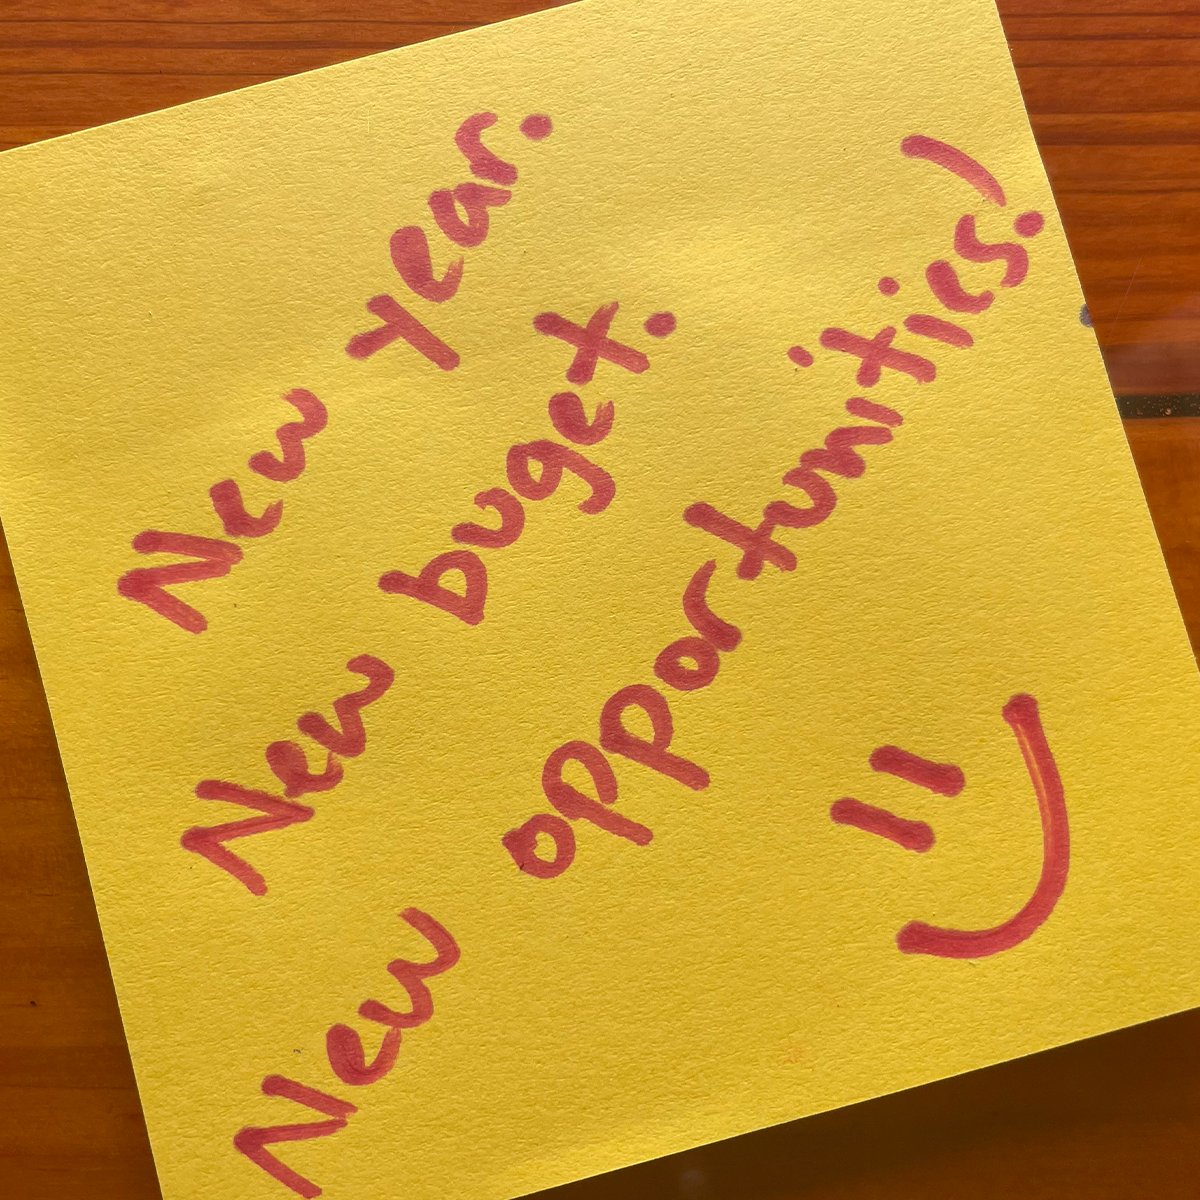 New year.
New buget.
New opportunities!